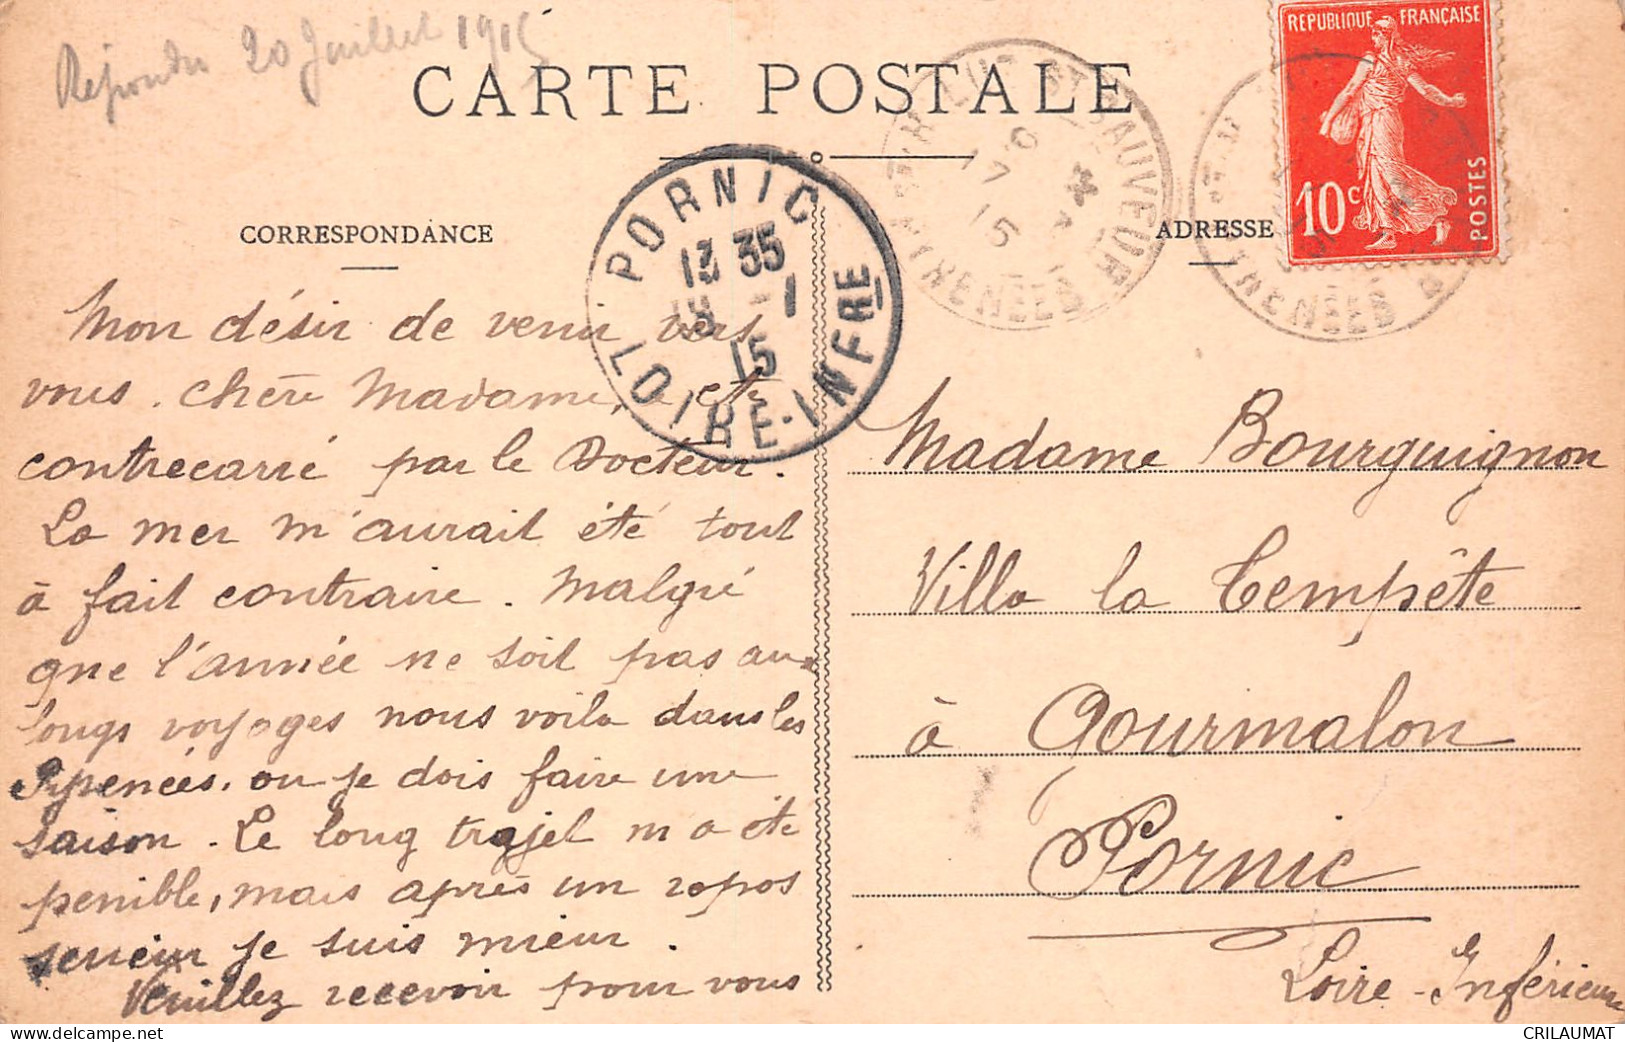 Répondu 20 Juillet 1915
CARTE POSTALE
CORRESPONDANCE
ADRESSE
RÉPUBLIQUE FRANÇAISE
10c
POSTES
PORNIC
13 35
1
15
LOIRE-INFRE
LUZ-ST-SAUVEUR
17
15
PYRENÉES
PYRENÉES
Mon désir de venir vers
vous, chère Madame, a été
contrecarré par le Docteur.
La mer m'aurait été tout
à fait contraire. Malgré
que l'année ne soit pas aux
longs voyages nous voilà dans les
Pyrenées, où je dois faire une
saison. Le long trajet m'a été
penible, mais après un repos
serieux je suis mieux.
Veuillez recevoir pour vous
Madame Bourguignon
Villa la Tempête
à Gourmalon
Pornic
Loire-Inférieure
CRILAUMAT